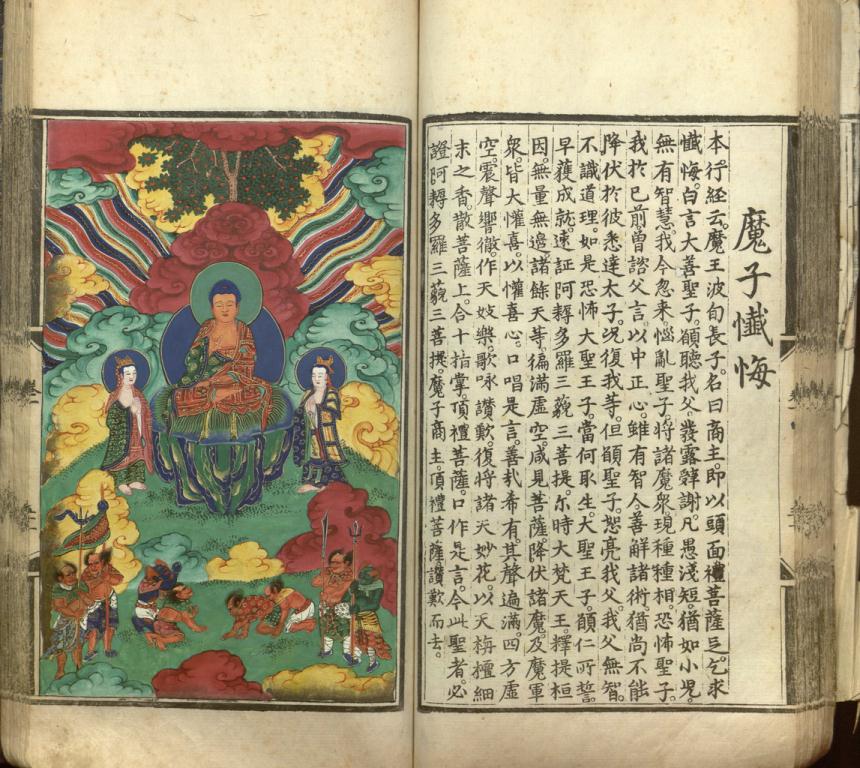 魔子懺悔
本行経云。魔王波旬長子。名曰商主。即以頭面禮菩薩足。乞求
懺悔。白言大善聖子。願聽我父。發露辭謝。凡愚淺短。猶如小兒。
無有智慧。我今忽来惱亂聖子。將諸魔衆。現種種相。恐怖聖子。
我於已前。曽諮父言。以中正心。雖有智人。善解諸術。猶尚不能
降伏於彼悉達太子。况復我等。但願聖子。恕亮我父。我父無智。
不識道理。如是恐怖大聖王子。當何取生。大聖王子。願仁所誓。
早獲成就。速証阿耨多羅三藐三菩提。尔時大梵天王。釋提桓
因。無量無邉諸餘天等。徧滿虛空。咸見菩薩。降伏諸魔。及魔軍
衆。皆大懽喜。以懽喜心。口唱是言。善㢤希有。其聲遍滿。四方虛
空。震聲響徹。作天妓樂。歌咏讃歎。復將諸天妙花。以天栴檀細
末之香。散菩薩上。合十指掌。頂禮菩薩。口作是言。今此聖者。必
證阿耨多羅三藐三菩提。魔子商主。頂禮菩薩。讃歎而去。